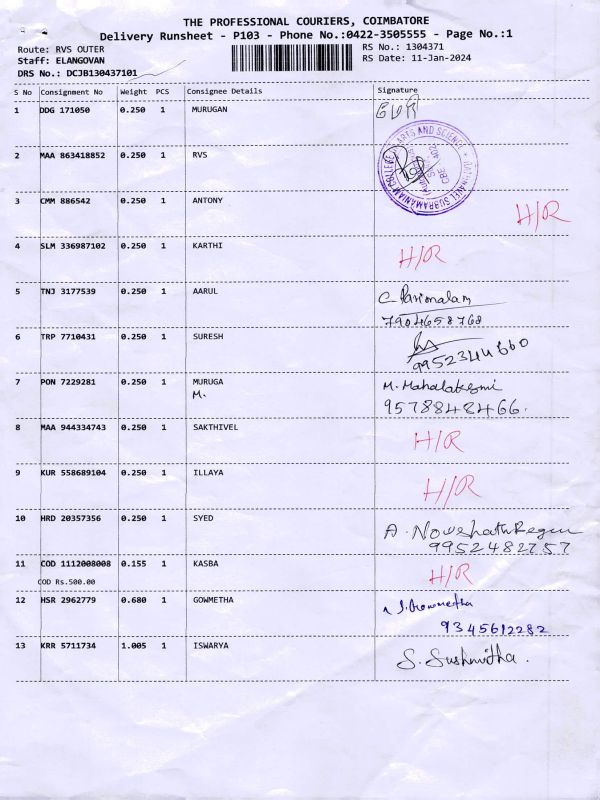 THE PROFESSIONAL COURIERS, COIMBATORE
Delivery Runsheet - P103 - Phone No.:0422-3505555 - Page No.:1
Route: RVS OUTER RS No.: 1304371
Staff: ELANGOVAN RS Date: 11-Jan-2024
DRS No.: DCJB130437101
S No Consignment No Weight PCS Consignee Details Signature
1 DDG 171050 0.250 1 MURUGAN
2 MAA 863418852 0.250 1 RVS
ARTS AND SCIENCE
3 CMM 886542 0.250 1 ANTONY H/R
4 SLM 336987102 0.250 1 KARTHI H/R
5 TNJ 3177539 0.250 1 AARUL C. Parimalam
7904658768
6 TRP 7710431 0.250 1 SURESH
9952344660
7 PON 7229281 0.250 1 MURUGA M. Mahalakshmi
M. 9578848466.
8 MAA 944334743 0.250 1 SAKTHIVEL H/R
9 KUR 558689104 0.250 1 ILLAYA H/R
10 HRD 20357356 0.250 1 SYED A. Nowshath Begum
9952482757
11 COD 1112008008 0.155 1 KASBA H/R
COD Rs.500.00
12 HSR 2962779 0.680 1 GOWMETHA Gowmetha
9345612282
13 KRR 5711734 1.005 1 ISWARYA S. Sushmitha.